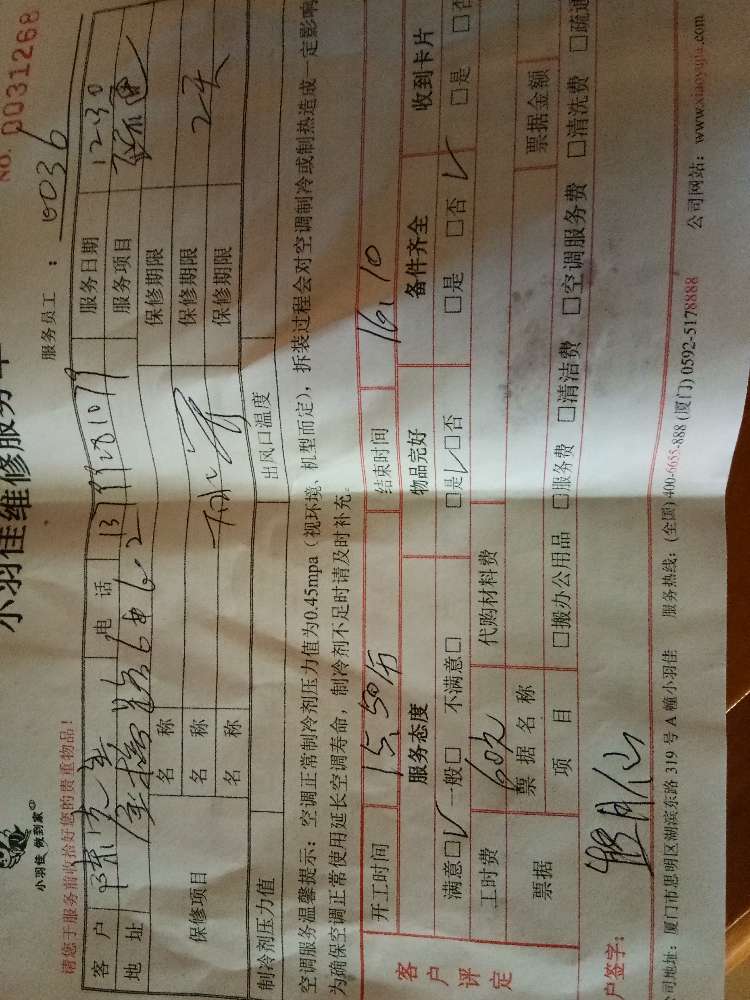 小羽佳 做到家
小羽佳维修服务单
No. 0031268
请您于服务前收拾好您的贵重物品！
服务员工： 0036
客户 电话 服务日期 12.30
地址 服务项目
保修项目 名称 保修期限
名称 保修期限 2天
名称 保修期限
制冷剂压力值 出风口温度
空调服务温馨提示：空调正常制冷剂压力值为0.45mpa（视环境、机型而定），拆装过程会对空调制冷或制热造成一定影响
为确保空调正常使用延长空调寿命，制冷剂不足时请及时补充。
客户评定
开工时间 15.50分 结束时间 16.10
服务态度 物品完好 备件齐全 收到卡片
满意□✓ 一般□ 不满意□ □是✓ □否 □是 □否✓ □是 □否
工时费 60元 代购材料费
票据 票据名称 票据金额
项目 □搬办公用品 □服务费 □清洁费 □空调服务费 □清洗费 □疏通
户签字： 月仙
司地址：厦门市思明区湖滨东路319号A幢小羽佳 服务热线：(全国)400-6655-888 (厦门) 0592-5178888 公司网站：www.xiaoyujia.com